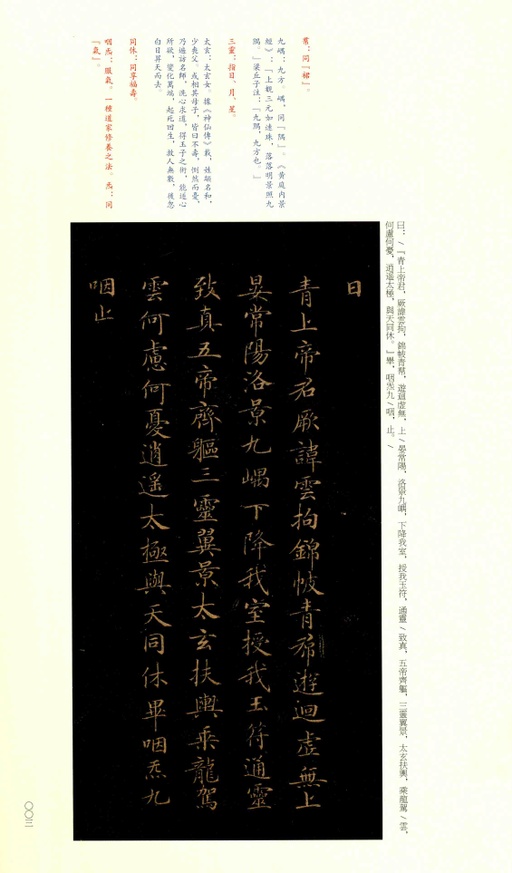 曰：／「青上帝君，厥諱雲拘，錦帔青帬，遊迴虛無。上／晏常陽，洛景九嵎，下降我室，授我玉符，通靈／致真，五帝齊軀，三靈翼景，太玄扶輿，乘龍駕／雲，
何慮何憂，逍遙太極，與天同休。」畢，咽炁九／咽，止。／
帬：同「裙」。
九嵎：九方。嵎，同「隅」。《黃庭內景
經》：「上覩三元如連珠，落落明景照九
隅。」梁丘子注：「九隅，九方也。」
三靈：指日、月、星。
太玄：太玄女。據《神仙傳》載，姓顓名和，
少喪父。或相其母子，皆曰不壽，惻然而憂。
乃遍訪名師，洗心求道，得玉子之術，能適心
所欲，變化萬端，起死回生，救人無數，後忽
白日昇天而去。
同休：同享福壽。
咽炁：服氣。一種道家修養之法。炁：同
「氣」。
曰
青上帝君厥諱雲拘錦帔青帬遊迴虛無上
晏常陽洛景九嵎下降我室授我玉符通靈
致真五帝齊軀三靈翼景太玄扶輿乘龍駕
雲何慮何憂逍遙太極與天同休畢咽炁九
咽止
〇〇三